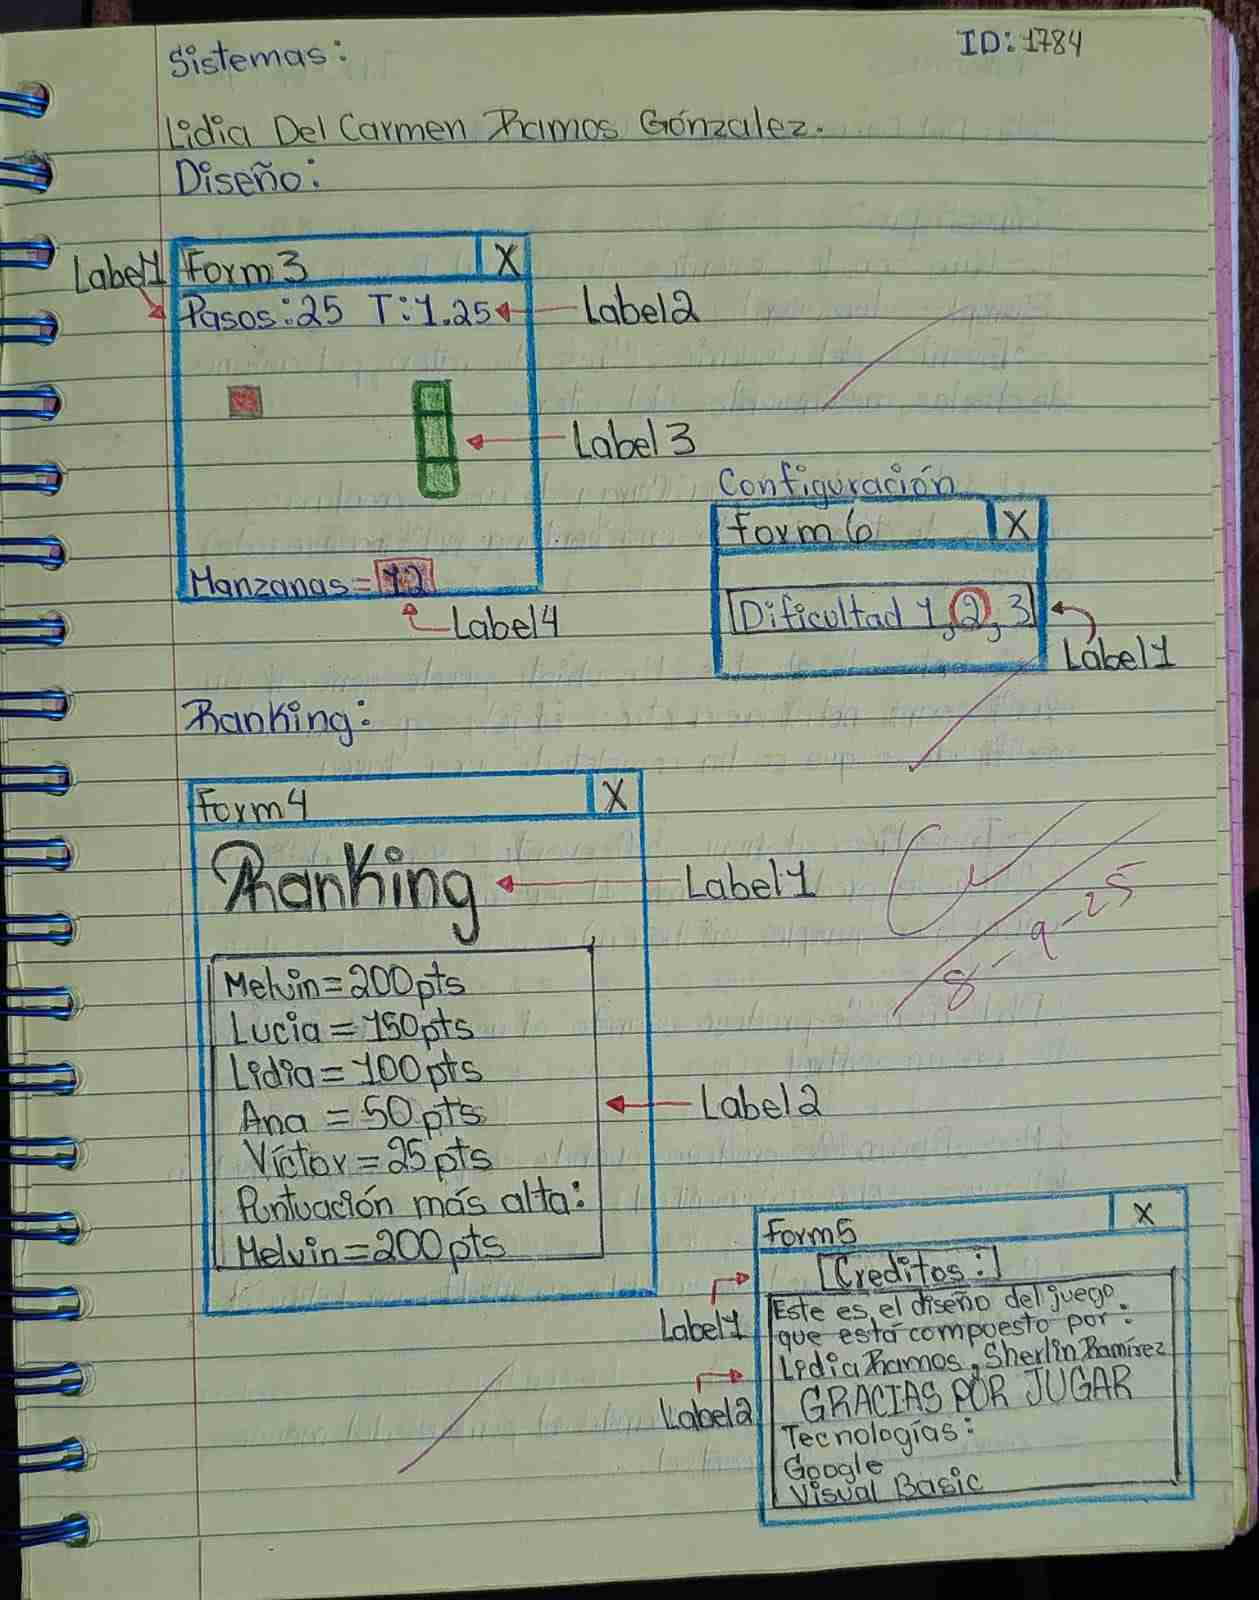 Sistemas:
ID: 1784
Lidia Del Carmen Ramos Gónzalez.
Diseño:
Label1
Form3 X
Pasos:25 T:1.25
Label2
Label3
Manzanas=12
Label4
Configuración
form6 X
Dificultad 1,2,3
Label1
Ranking:
Form4 X
Ranking
Label1
Melvin=200pts
Lucia=150pts
Lidia=100pts
Ana = 50pts
Víctor=25pts
Puntuación más alta:
Melvin=200pts
Label2
8-9-25
Form5 X
[Creditos:]
Label1
Este es el diseño del juego
que está compuesto por:
Lidia Ramos, Sherlin Ramírez
Label2
GRACIAS POR JUGAR
Tecnologías:
Google
Visual Basic